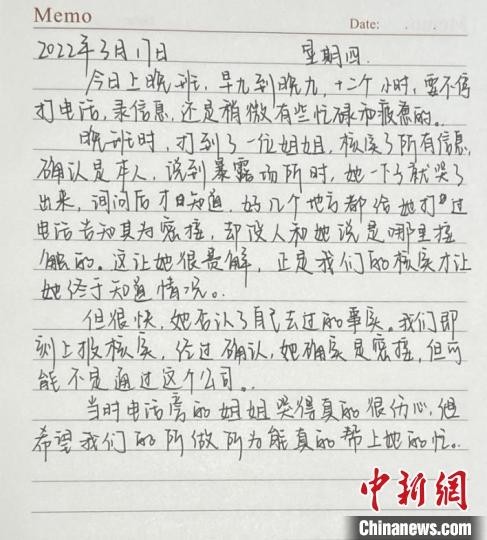 Memo
Date:
2022年3月17日 星期四.
今日上晚班，早九到晚九，十二个小时，要不停
打电话，录信息，还是稍微有些忙碌和疲惫的。
晚班时，打到了一位姐姐，核实了所有信息，
确认是本人，说到暴露场所时，她一下子就哭了
出来，询问后才知道，好几个地方都给她打过
电话告知其为密接，却没人和她说是哪里接
触的。这让她很费解，正是我们的核实才让
她终于知道情况。
但很快，她否认了自己去过的事实。我们即
刻上报核实，经过确认，她确实是密接，但可
能不是通过这个公司。
当时电话旁的姐姐哭得真的很伤心，但
希望我们的所做所为能真的帮上她的忙。
中新网
Chinanews.com